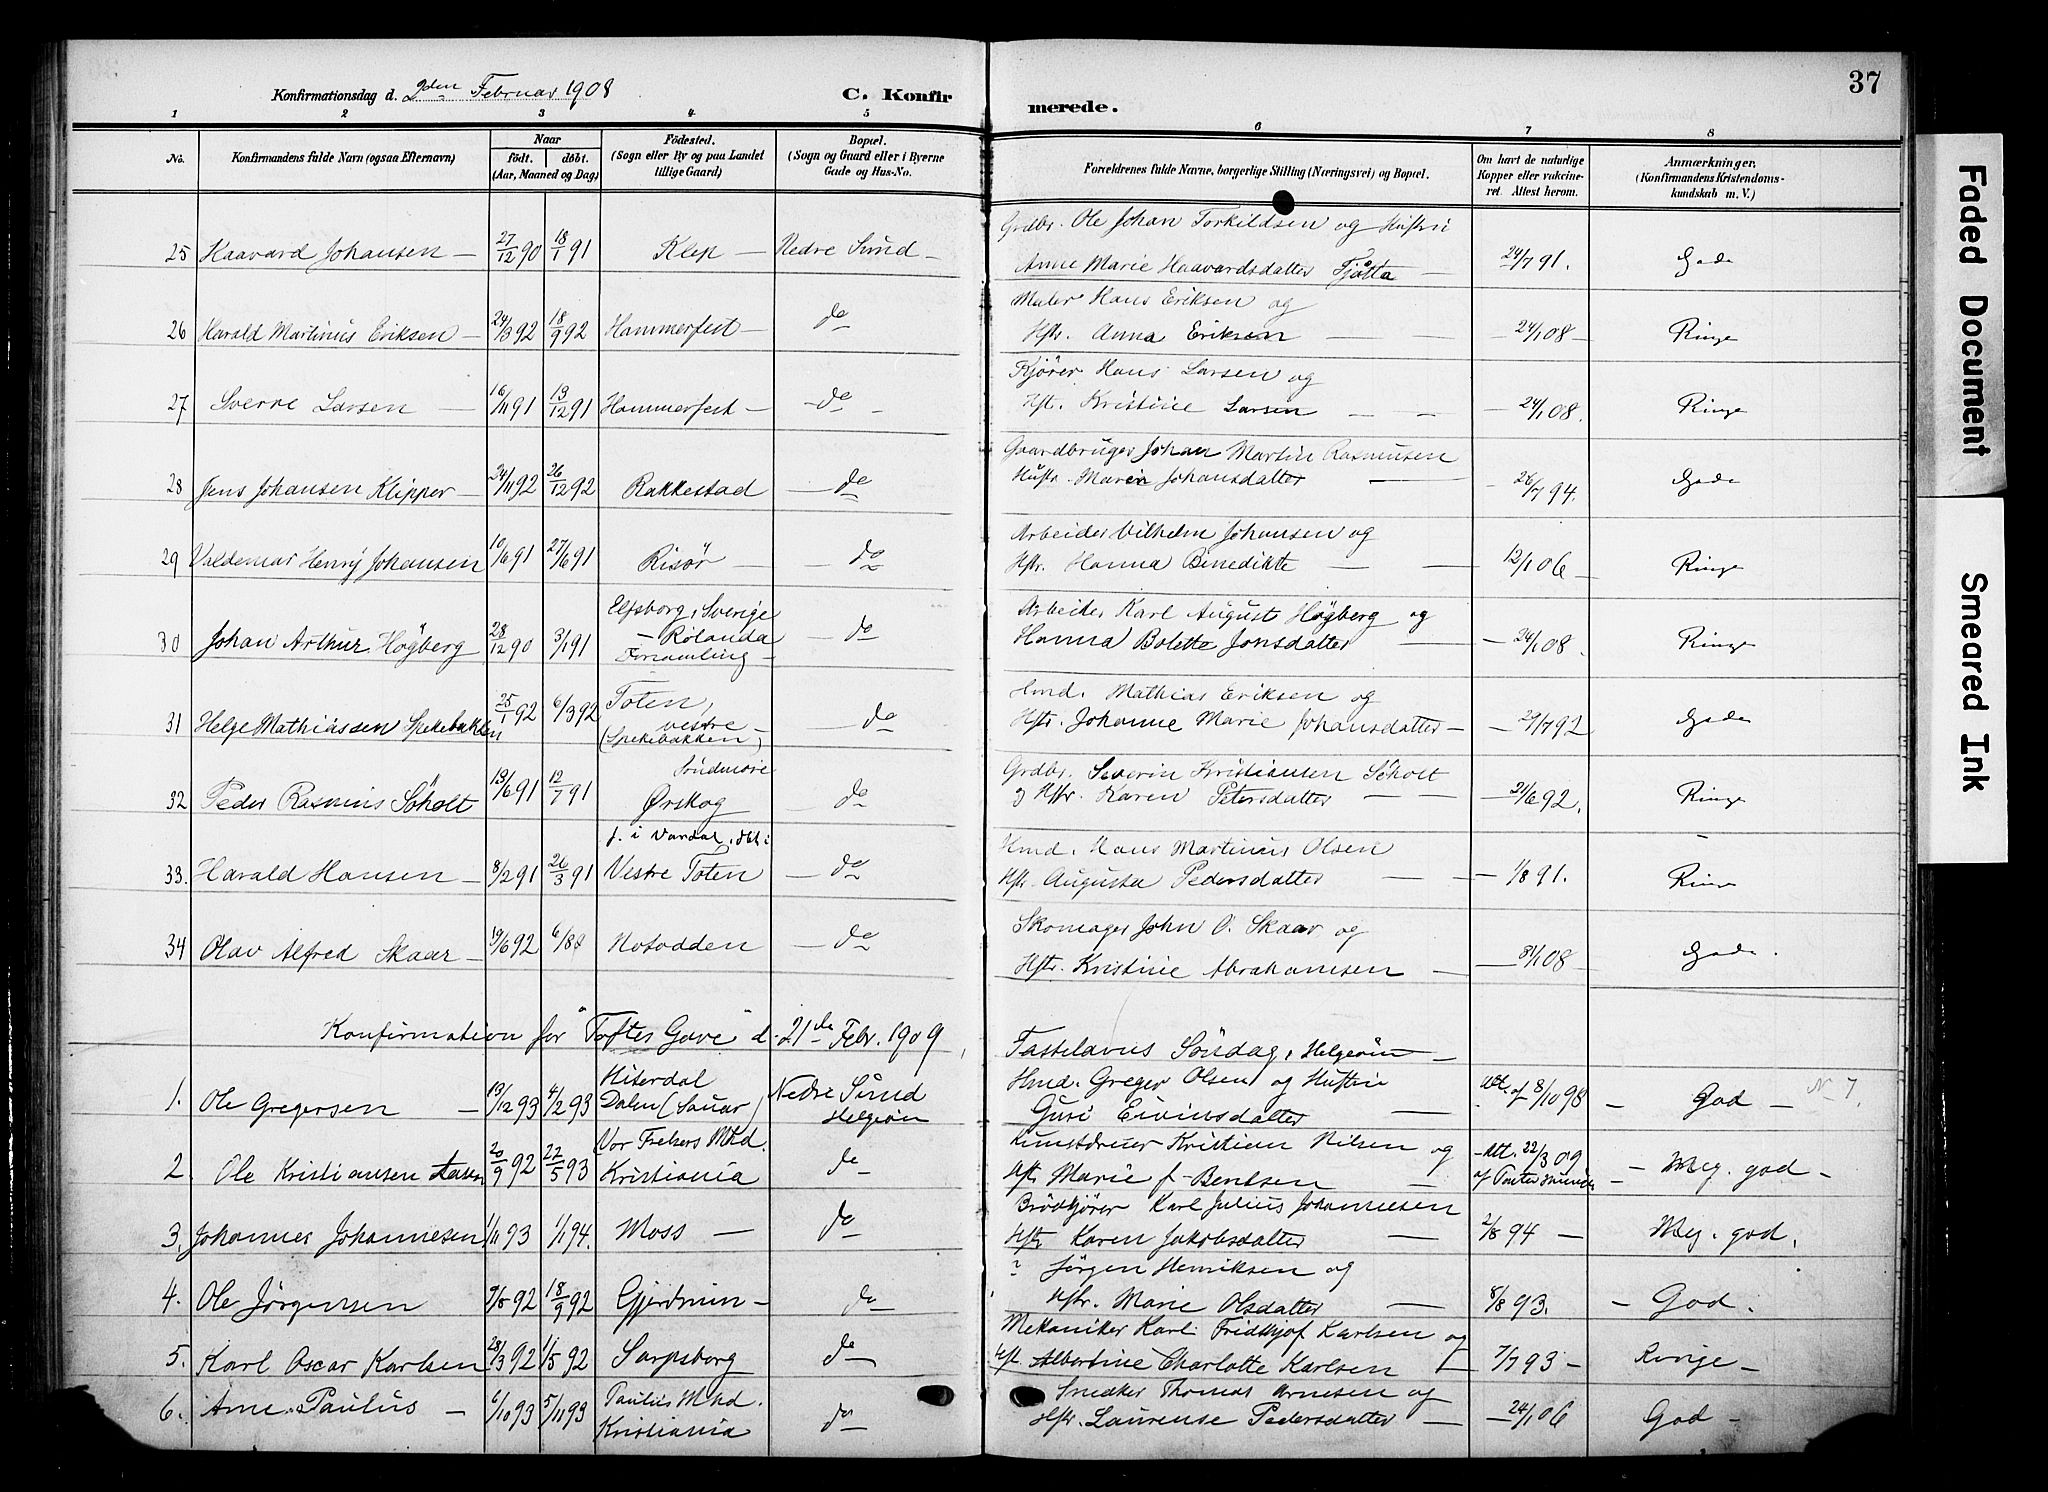 Konfirmationsdag d. 2den Februar 1908 C. Konfir merede. 37
1 2 3 4 5 6 7 8
No. Konfirmandens fulde Navn (ogsaa Efternavn) Naar født. døbt. (Aar, Maaned og Dag) Födested. (Sogn eller By og paa Landet tillige Gaard) Bopæl. (Sogn og Gaard eller i Byerne Gade og Hus-No. Forældrenes fulde Navne, borgerlige Stilling (Næringsvei) og Bopæl. Om havt de naturlige Kopper eller vaccineret. Attest herom. Anmærkninger. (Konfirmandens Kristendomskundskab m. V.)
Grdbr. Ole Johan Torkildsen og Hustru
25 Haavard Johansen — 27/12 90 18/1 91 Klep — Nedre Sund — Anne Marie Haavardsdatter Tjøtta — 24/7 91. Gode
Maler Hans Eriksen og
26 Harald Martinus Eriksen — 24/3 92 18/9 92 Hammerfest — do Hstr. Anna Eriksen — — 24/1 08 — Ringe
Kjører Hans Larsen og
27 Sverre Larsen — 16/11 91 13/12 91 Hammerfest — — do — Hst. Kristine Larsen — — — 24/1 08. Ringe
Gaardbruger Johan Martin Rasmussen
28 Jens Johansen Klipper — 24/11 92 26/12 92 Rakkestad — do Hustr. Maren Johansdatter — — 26/7 94. Gode
Arbeider Vilhelm Johansen og
29 Valdemar Henry Johansen 10/6 91 27/6 91 Risør — do Hstr. Hanna Benedikte — — 12/1 06 — Ringe
Elfsborg, Sverige Arbeider Karl August Högberg og
30 Johan Arthur Högberg 28/12 90 3/1 91 — Rölanda — do Hanna Bolette Jonsdatter — 24/1 08. Ringe
Forsamling —
Toten, Hmd. Mathias Eriksen og
31 Helge Mathiassen Spekebakken 25/1 92 6/3 92 vestre — do Hstr. Johanne Marie Johansdatter — — 29/7 92 Gode
(Spekebakken)
Søndmøre Grdbr. Severin Kristiansen Söholt
32 Peder Rasmus Söholt 13/6 91 12/7 91 Ørskog — do og Hstr. Karen Petersdatter — — — 21/6 92. Ringe
f. i Vardal, døbt i Hmd. Hans Martinius Olsen
33. Harald Hansen — 8/2 91 26/3 91 Vestre Toten — do Hstr Augusta Pedersdatter — — — 1/8 91. Ringe
Skomager John O. Skaar og
34 Olav Alfred Skaar — 19/6 92 6/8 Notodden — do Hstr. Kristine Abrahamsen — — 31/1 08 — Gode.
Konfirmation for "Toftes Gave" d. 21de Febr. 1909, Fastelavns Söndag, Helgeøen —
Hiterdal Nedre Sund Hmd. Greger Olsen og Hustru Att. af 8/10 98
1. Ole Gregersen — 19/12 93 4/2 93 Dalen (Sauar) Helgeøen Guri Eivinsdatter — — God — N 7.
Vor Frelsers Mhd. Kristian Nilsen og — Att. 22/3 09
2. Ole Kristiansen 20/9 92 22/5 93 Kristiania do Hstr Marie f. Bentsen — — Meg. god —
Brödkjörer Karl Julius Johannesen
3. Johannes Johannesen 1/11 93 1/1 94. Moss — do Hstr Karen Jakobsdatter — 2/8 94 — Meg. god.
? Jörgen Henriksen og
4. Ole Jörgensen 7/8 92 18/9 92 Gjerdrum — do Hstr. Marie Olsdatter — 8/8 93. — God.
Mekaniker Karl Fridthjof Karlsen og
5. Karl Oscar Karlsen 28/3 92 1/5 92 Sarpsborg do Hst. Albertine Charlotte Karlsen — 7/7 93 — Ringe —
Paulus Mhd. Snedker Thomas Arnesen og
6. Arne Paulus — 6/10 93 5/11 93 Kristiania do Hstr. Laurense Pedersdatter — — 24/1 06 God —
Faded Document
Smeared Ink